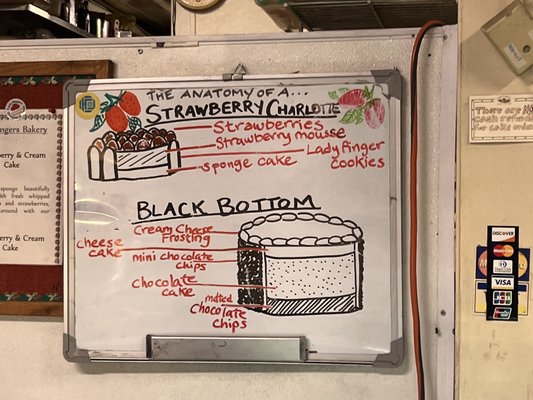 THE ANATOMY OF A...
STRAWBERRY CHARLOTTE
Strawberries
Strawberry mousse
Lady Finger
Cookies
sponge cake
BLACK BOTTOM
Cream Cheese
Frosting
cheese
cake
mini chocolate
chips
chocolate
cake
melted
Chocolate
chips
ngers Bakery
berry & Cream
Cake
sponge beautifully
with fresh whipped
and strawberries,
around with our
berry & Cream
Cake
There are NO
cash refunds
for cake orders
DISCOVER
VISA
JCB